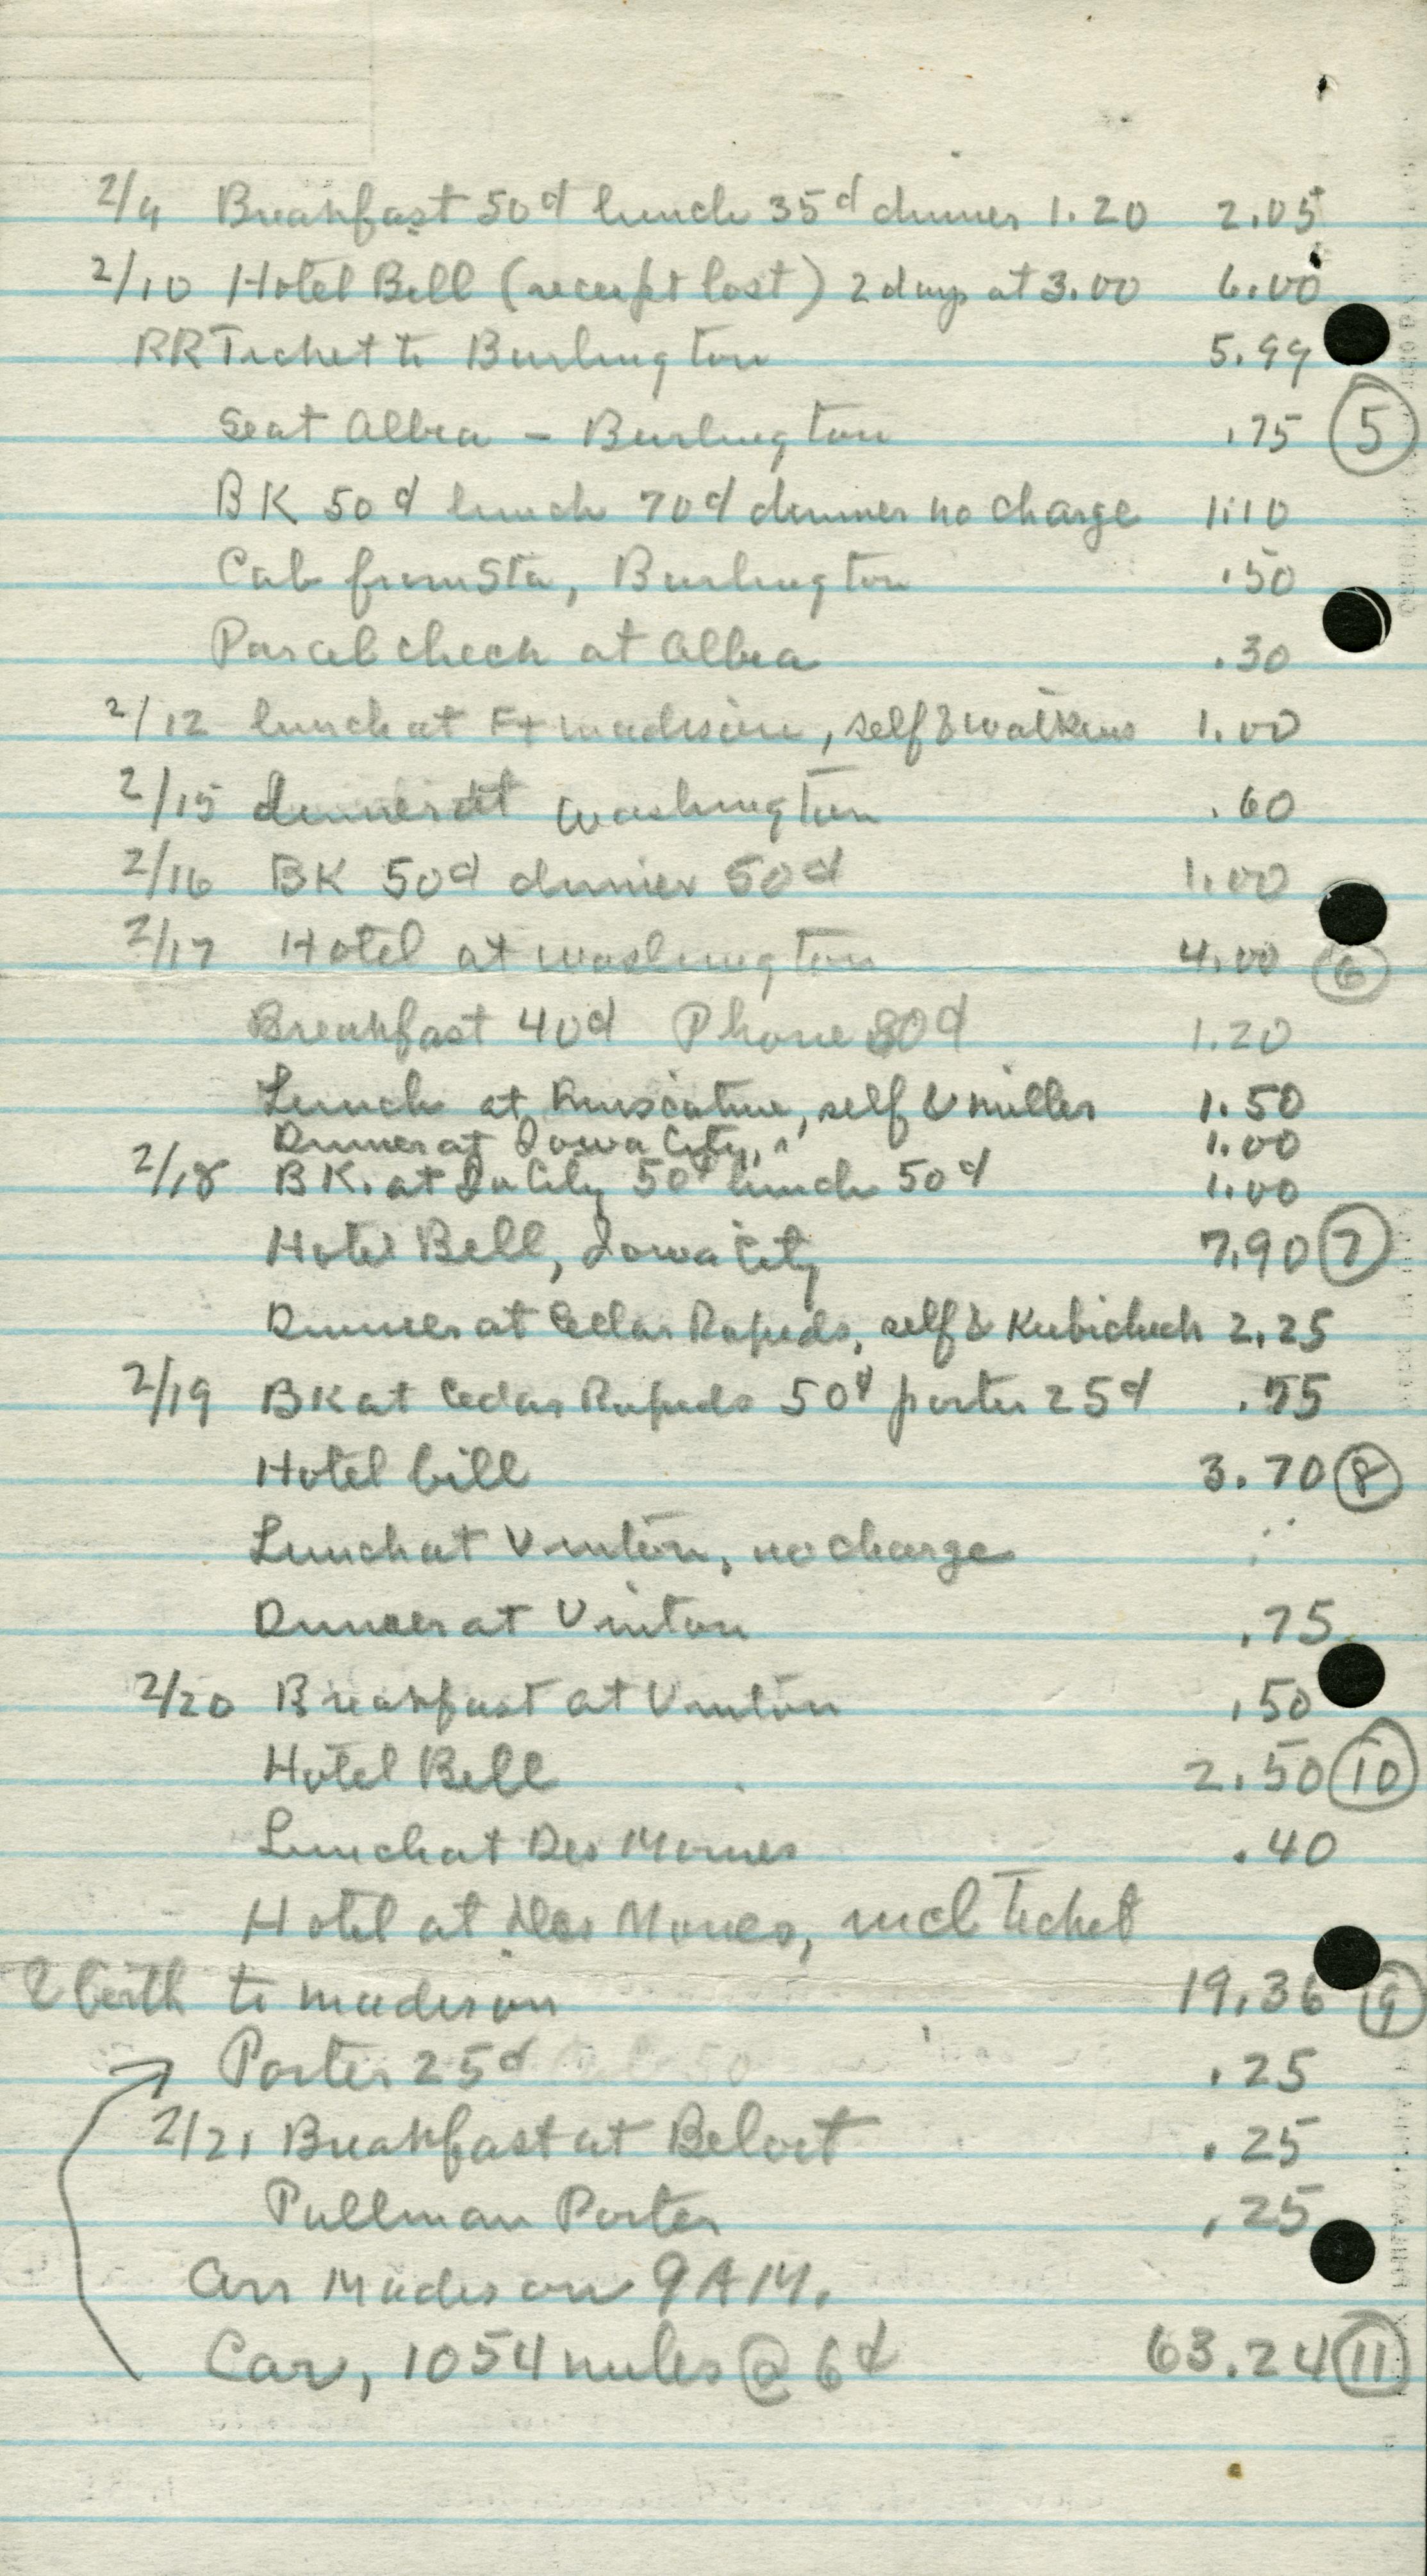 2/9 Breakfast 50¢ lunch 35¢ dinner 1.20 2.05
2/10 Hotel Bill (receipt lost) 2 days at 3.00 6.00
RR Ticket to Burlington 5.99
Seat Albia - Burlington .75 5
BK 50¢ lunch 70¢ dinner no charge 1.10
Cab from Sta, Burlington .50
Parcel check at Albia .30
2/12 lunch at Ft Madison, self & Watkins 1.00
2/15 dinner at Washington .60
2/16 BK 50¢ dinner 50¢ 1.00
2/17 Hotel at Washington 4.00 6
Breakfast 40¢ Phone 80¢ 1.20
Lunch at Muscatine, self & Miller 1.50
Dinner at Iowa City, " 1.00
2/18 BK. at Ia City 50¢ lunch 50¢ 1.00
Hotel Bill, Iowa City 7.90 7
Dinner at Cedar Rapids, self & Kubichek 2.25
2/19 BK at Cedar Rapids 50¢ porter 25¢ .75
Hotel bill 3.70 8
Lunch at Vinton, no charge
Dinner at Vinton .75
2/20 Breakfast at Vinton .50
Hotel Bill 2.50 10
Lunch at Des Moines .40
Hotel at Des Moines, incl ticket
& berth to Madison 19.36 9
Porter 25¢ .25
2/21 Breakfast at Beloit .25
Pullman Porter .25
Arr Madison 9 AM.
Car, 1054 miles @ 6¢ 63.24 11